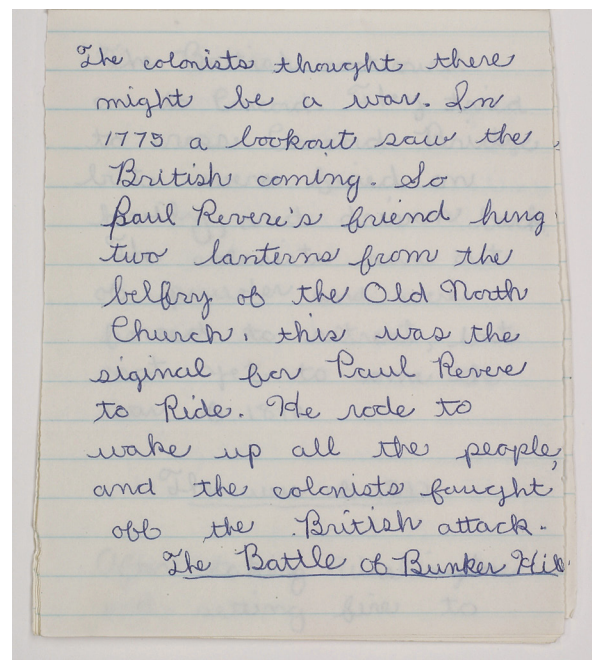 The colonists thought there
might be a war. In
1775 a lookout saw the
British coming. So
Paul Revere's friend hung
two lanterns from the
belfry of the Old North
Church. this was the
siginal for Paul Revere
to Ride. He rode to
wake up all the people,
and the colonists faught
off the British attack.
The Battle of Bunker Hill.